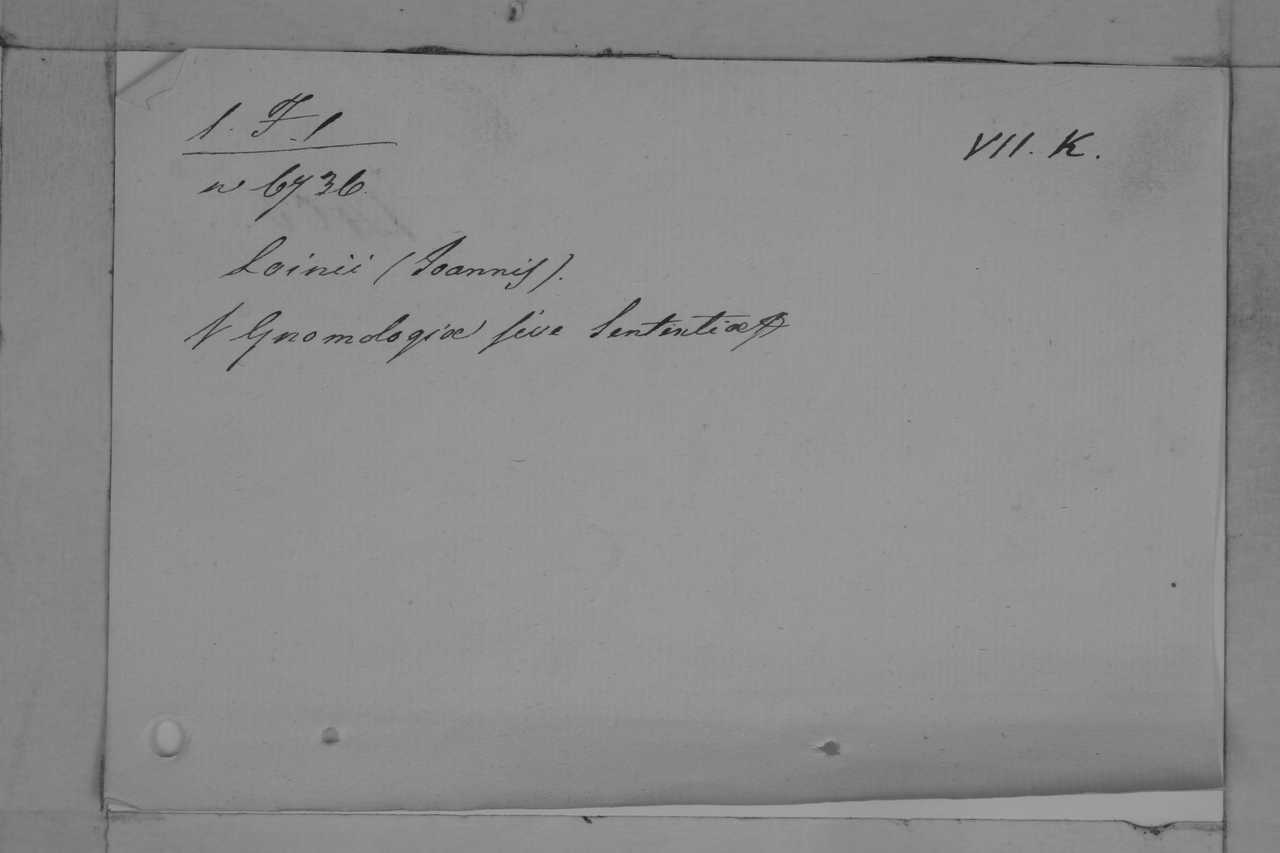 1. F. 1
VII. K.
n 6736
Loinii (Joannis).
Gnomologiæ sive Sententiæ